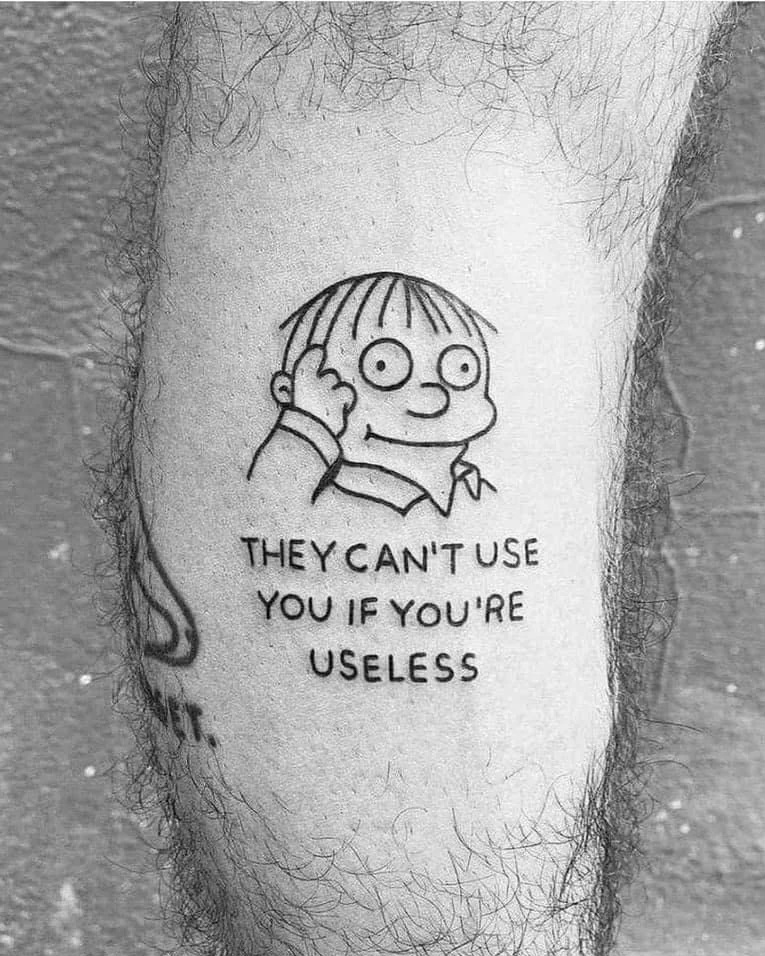 THEY CAN'T USE
YOU IF YOU'RE
USELESS